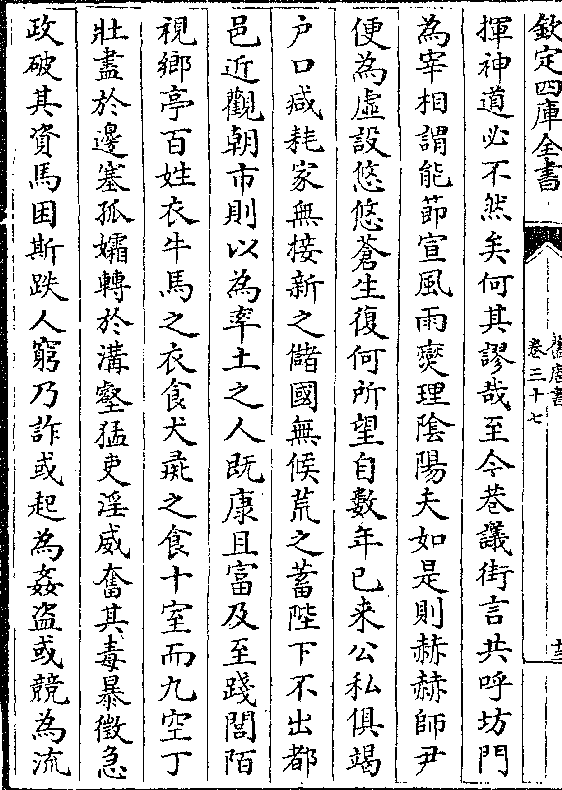 欽定四庫全書
舊唐書
卷三十七
揮神道必不然矣何其謬哉至今巷議街言共呼坊門
為宰相謂能節宣風雨爕理隂陽夫如是則赫赫師尹
便為虚設悠悠蒼生復何所望自數年已来公私俱竭
户口减耗家無接新之儲國無候荒之蓄陛下不出都
邑近觀朝市則以為率土之人既康且富及至踐閭陌
視鄉亭百姓衣牛馬之衣食犬彘之食十室而九空丁
壯盡於邊塞孤孀轉於溝壑猛吏淫威奮其毒暴徵急
政破其資馬困斯跌人窮乃詐或起為姦盗或競為流